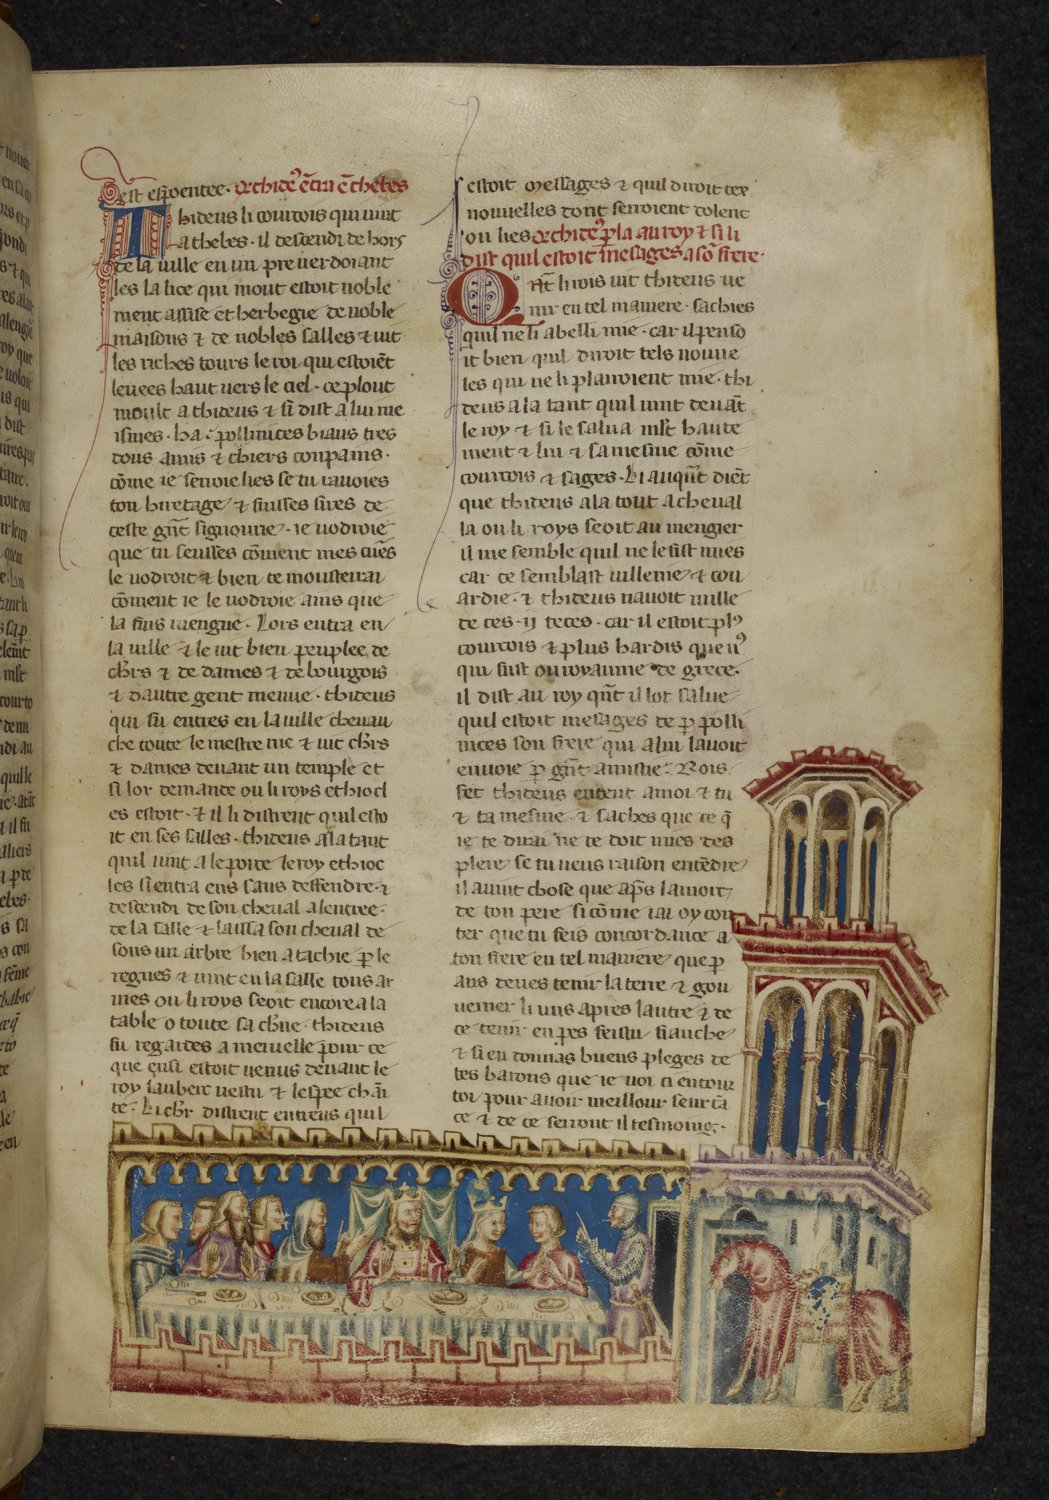 est espoentee. 
hideus li courtois qui vint
a thebes. il descendi de hors
de la ville en un pre verdoiant
les la lice qui mout estoit noble
ment assise et herbegie de noble
maisons ⁊ de nobles salles ⁊ vit
les riches tours le roi qui estoiēt
levees haut vers le ciel. ce plout
moult a thideus ⁊ si dist a lui me
ismes. ha. pollinices biaus tres
dous amis ⁊ chiers conpains.
cōme ie seroie lies se tu ravoies
ton hiretage ⁊ fuisses sires de
ceste gn̄t signourie. ie vodroie
que tu seusses cōment mes cuēs
le vodroit ⁊ bien te mousterrai
cōment ie le vodroie ains que
la fins viengne. Lors entra en
la ville ⁊ le vit bien peuplee de
chrs ⁊ de dames ⁊ de bourgois
⁊ dautre gent menue. thideus
qui fu entres en la ville chevau
che toute le mestre rue ⁊ vit chrs
⁊ dames devant un temple et
si lor demande ou li roys ethiocl
es estoit. ⁊ il li distrent quil esto
it en ses salles. thideus ala tant
quil vint a le porte le roy ethioc
les si entra ens sans deffendre ⁊
descendi de son cheval a lentree.
de la salle ⁊ laissa son cheval de
sous un arbre bien atachie ꝑ le
regnes ⁊ vint en la salle tous ar
mes ou li roys seoit encore a la
table o toute sa chrie. thideus
fu regardes a merveille pour ce
que ensi estoit venus devant le
roy laubere vestu ⁊ lespee chai
te. Li chr distrent entreus quil
estoit messages ⁊ quil diroit tex
nouvelles dont seroient dolent
ou lies
dist quil estoit mesages a sō frere.
Qn̄t li rois vit thideus ve
nir en tel maniere. sachies
quil ne li abelli mie. car il penso
it bien quil diroit tels nouve
les qui ne li plairoient mie. thi
deus ala tant quil vint devāt
le roy ⁊ si le salua mlt haute
ment ⁊ lui ⁊ sa mesnie cōme
courtois ⁊ sages. Li auqn̄t diēt
que thideus ala tout a cheval
la ou li roys seoit au mengier
il me semble quil ne le fist mies
car ce semblast villenie ⁊ cou
ardie. ⁊ thideus navoit nulle
de ces .ij. teces. car il estoit pl9
courtois ⁊ plus hardis que n9
qui fust ou royaume de grece.
il dist au roy qn̄t il lot salue
quil estoit mesages de ꝑ polli
nices son frere qui a lui lavoit
envoie ꝑ gn̄t amistie. Rois
fet thideus entent a moi ⁊ tu
⁊ ta mesnie. ⁊ saches que ce q̄
ie te dirai ne te doit mies des
plere se tu veus raison entēdre
il avint chose que apr̄s la mort
de ton pere si cōme iai oy con
ter que tu feis concordance a
ton frere en tel maniere que ꝑ
ans deves tenir la terre ⁊ gou
verner li uns apres lautre ⁊ de
ce tenir en pes feistu fianche
⁊ si en donnas buens pleges de
tes barons que ie voi ci entour
toi pour avoir meillour seurta
ce ⁊ de ce seront il tesmoing.